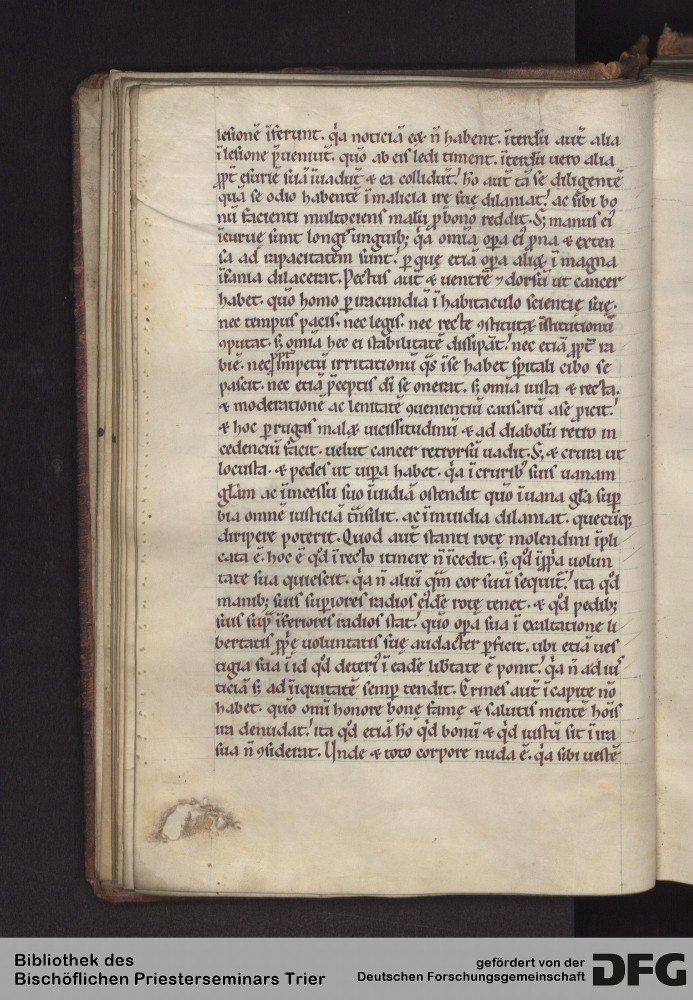 lesionē īferunt. q̇a noticiā eaꝝ n̄ habent. īterdū aut̄ alia
ī lesione p̄ueniūt. quo ab eis ledi timent. īterdū uero alia
ꝓpt̄ esuriē suā īuadūt ⁊ ea collidūt. ho aut̄ tā se diligentē
quā se odio habentē ī malicia irę suę dilaniat. ac sibi bo
nū facienti multociens malū ꝓ bono reddit. S; manus ei᷒
īcuruę sunt longis unguib; q̇a om̄ia oꝑa ei᷒ praua ⁊ exten
sa ad rapacitatem sunt. ꝑ quę etiā oꝑa aliqͣ ī magna
īsania dilacerat. Pectus aut̄ ⁊ uentrē ⁊ dorsū ut cancer
habet. quo homo ꝑ iracundiā ī habitaculo scientię suę.
nec tempus pacis. nec legis. nec recte ꝯstitutę īstitutionū
ꝯputat. s; om̄ia hec ei stabilitatē dissipāt. nec etiā ꝓpt̄ ra
biē. nec ꝓpt̄ īpetū irritationū q̄s ī se habet sp̄itali cibo se
pascit. nec etiā p̄ceptis dī se onerat. s; om̄ia iusta ⁊ recta.
⁊ moderationē ac lenitatē ꝯuenientiū causarū a se ꝓicit.
⁊ hoc ꝑ rugas malaꝝ uicissitudinū ⁊ ad diabolū retro in
cedenciū facit. uelut cancer retrorsū uadit. S; ⁊ crura ut
locusta. ⁊ pedes ut uiꝑa habet. q̇a ī crurib᷒ suis uanam
gl̄am ac ī incessu suo īuidiā ostendit quo ī uana gl̄a suꝑ
bia omnē iusticiā t̄nsilit. ac ī inuidia dilaniat. quecūq;
diripere poterit. Quod aut̄ stanti rotę molendini īpli
cata ē. hoc ē qd̄ ī recto itinere n̄ īcedit. s; qd̄ ī ꝓp̄a uolun
tate sua quiescit. q̇a n̄ aliū q̄m cor suū sequit᷒. ita qd̄
manib; suis suꝑiores radios eidē rotę tenet. ⁊ qd̄ pedib;
suis suꝑ īferiores radios stat. quo oꝑa sua ī exaltatione li
bertatis ꝓp̄ę uoluntatis suę audacter ꝑficit. ubi etiā ues
tigia sua ī id qd̄ deteri᷒ ī eadē lib̄tate ē ponit. q̇a n̄ ad ius
ticiā s; ad īiquitatē semꝑ tendit. Crines aut̄ ī capite nō
habet. quo omī honore bonę famę ⁊ salutis mentē hoīs
ira denudat. ita qd̄ etiā ho qd̄ bonū ⁊ qd̄ iustū sit ī ira
sua n̄ ꝯsiderat. Unde ⁊ toto corpore nuda ē. q̇a sibi uestē
Bibliothek des
Bischöflichen Priesterseminars Trier
gefördert von der
Deutschen Forschungsgemeinschaft
DFG